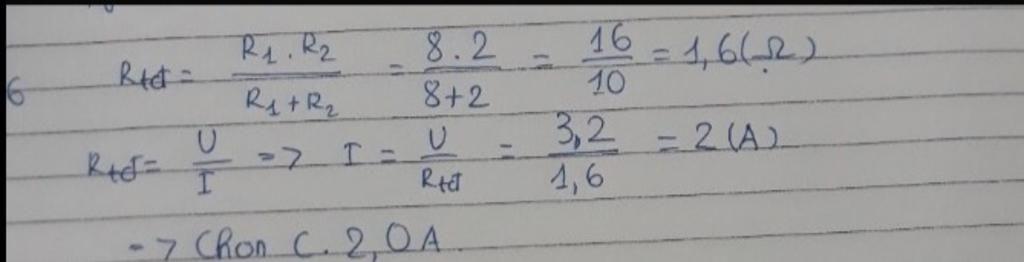 6 Rtđ = R1 . R2 / R1 + R2 = 8 . 2 / 8 + 2 = 16 / 10 = 1,6 (Ω)
Rtđ = U / I => I = U / Rtđ = 3,2 / 1,6 = 2 (A)
-> Chọn C. 2,0 A